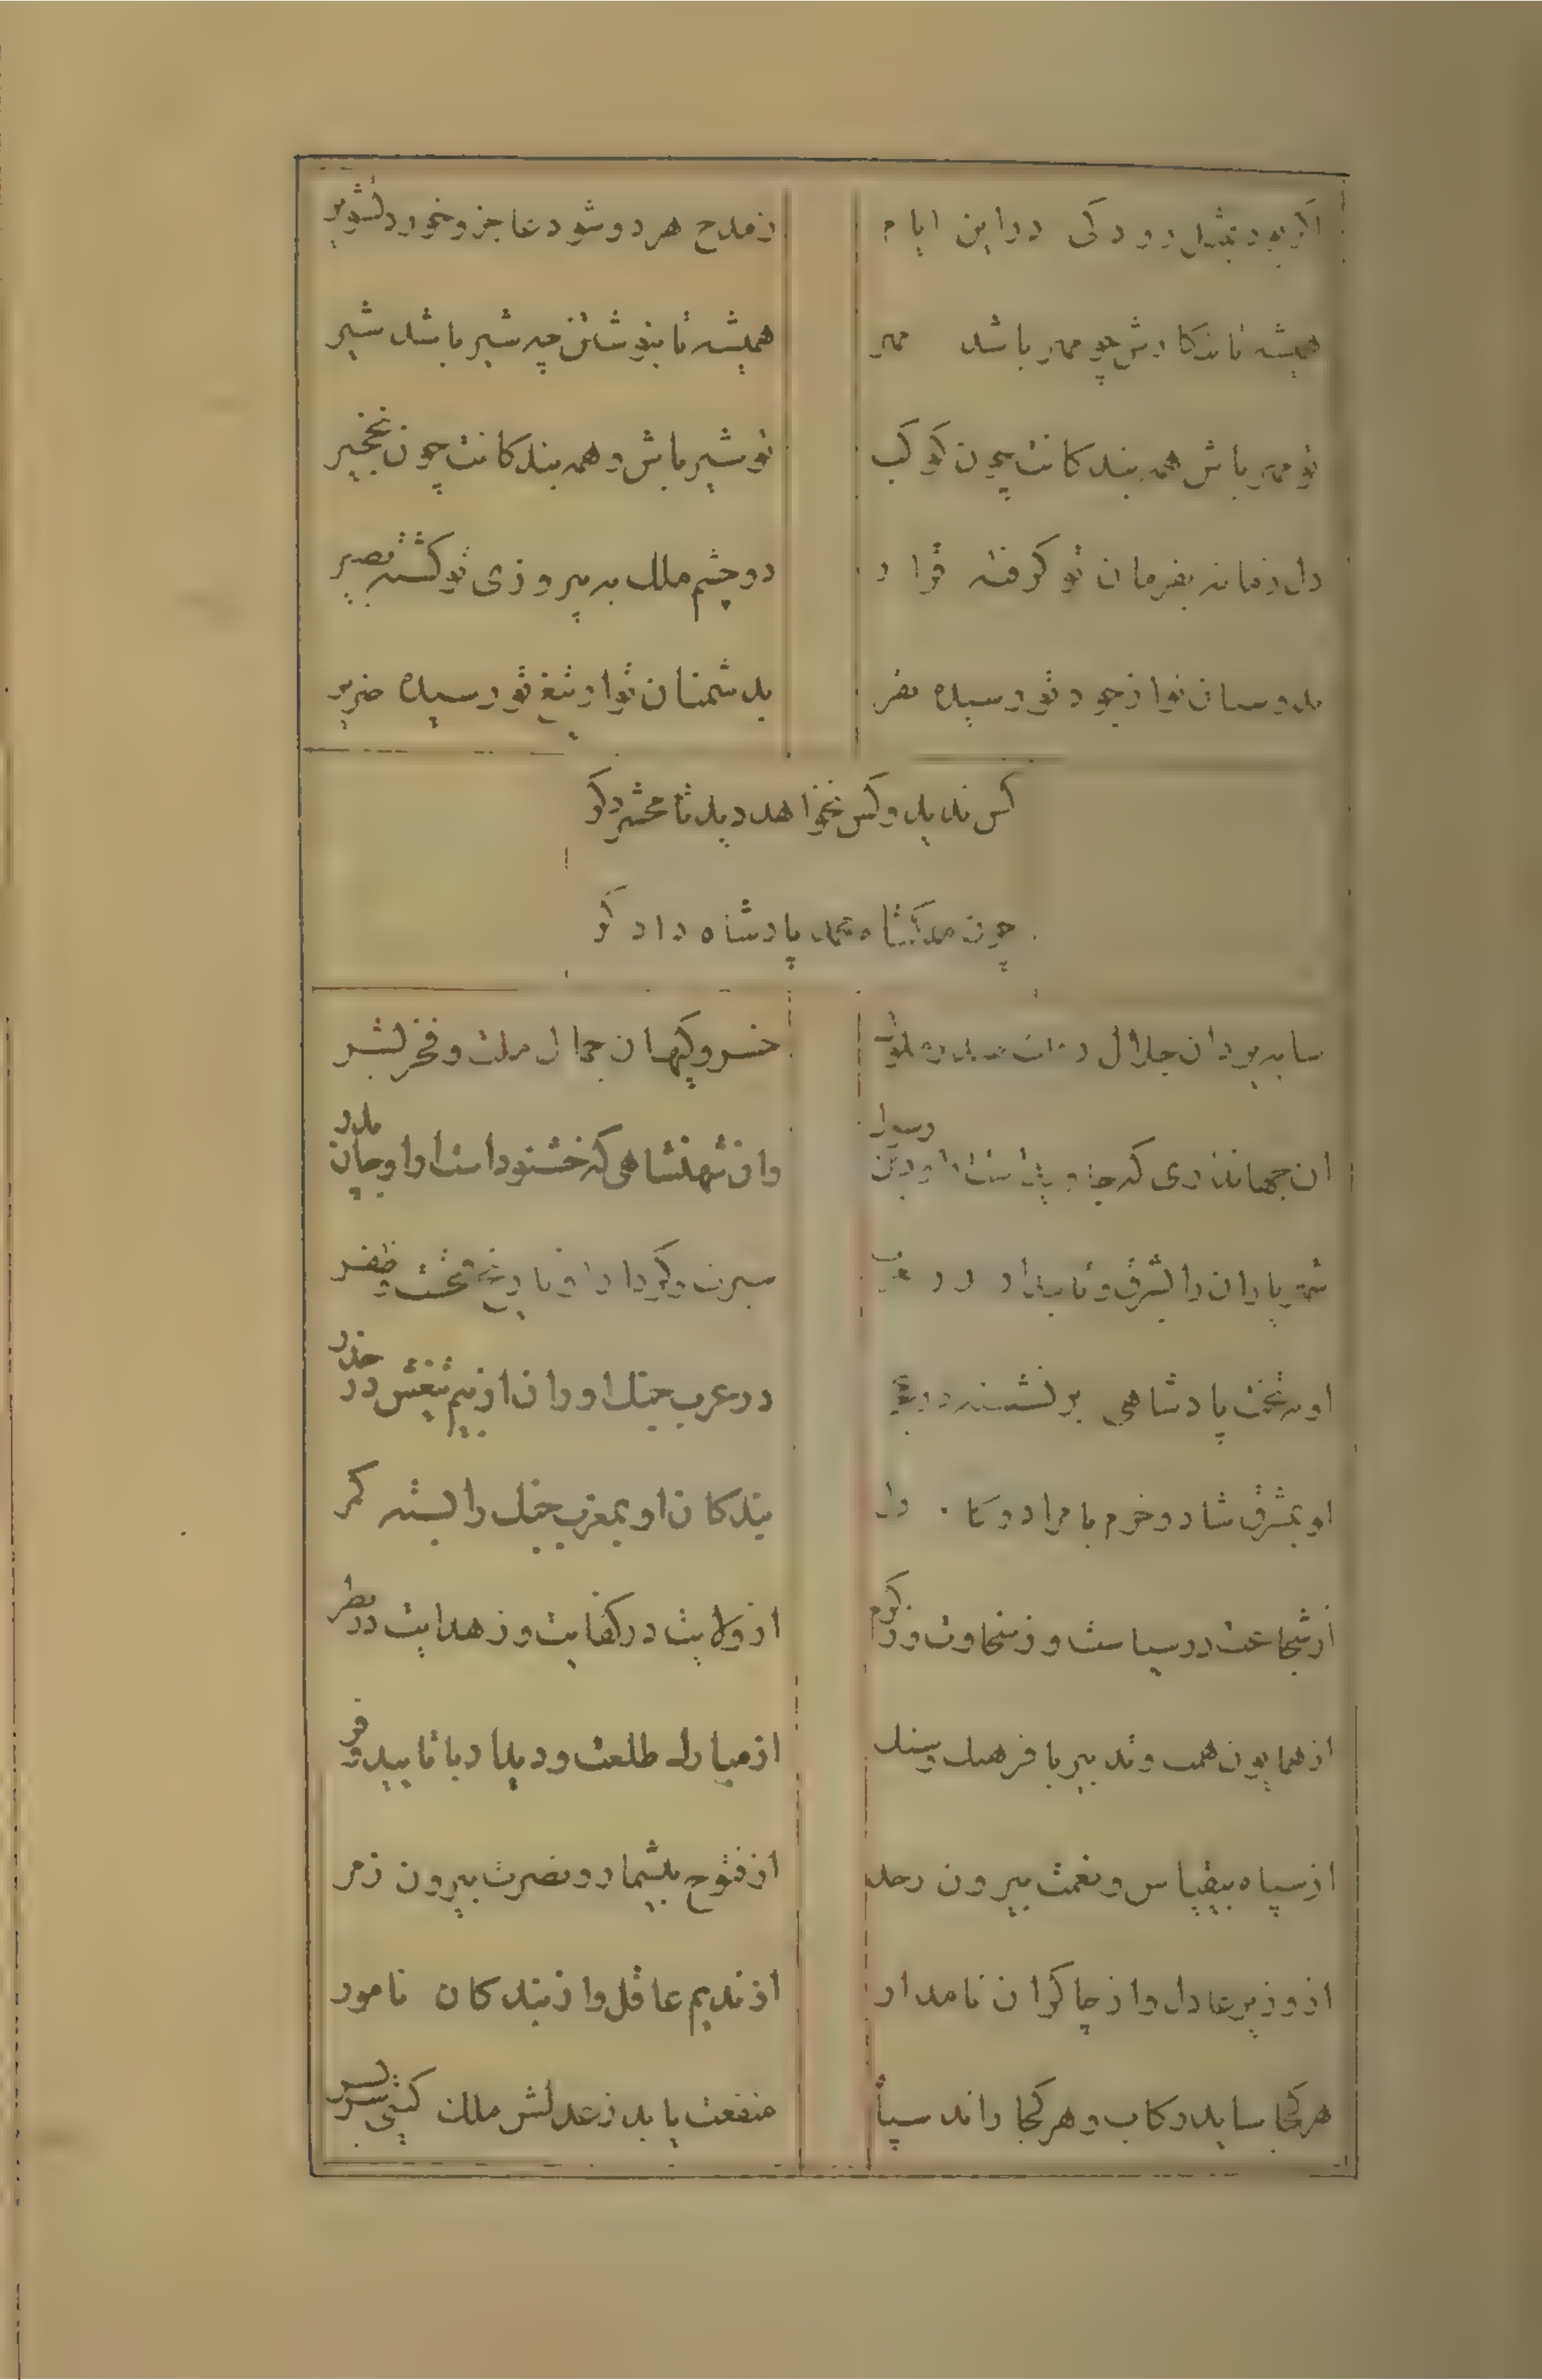 اکر بود بمثل رودکی درین ایام
زمدح هر دو شود عاجز و خورد تشویر
همیشه تا بنوشتن چه شیر باشد شیر
تو مهر باش همه بندکانت چون کوکب
تو شیر باش و همه بندکانت چون نخجیر
دل زمانه بفرمان تو کرفته قرار
دو چشم ملک به پیروزی تو کشته بصیر
بدوستان ترا ز جود تو رسیده نفر
بدشمنان ترا ز تیغ تو رسیده ضریر
کس ندید و کس نخواهد دید تا محشر دکر
چون ملکشاه محمد پادشاه دادکر
سایه یزدان جلال
خسرو کیهان جمال ملت و فخر بشر
ان جهانداری که رسول
وان شهنشاهی که خشنود است ازاو جان پدر
شهریاران را بشرق و تایید او در عرب
سیرت و کردار او تاریخ فتحست و ظفر
او بتخت پادشاهی بر نشسته در
در عرب جنک اوران از بیم تیغش در حذر
او بمشرق شاد و خرم با مراد و کام دل
بندکان او بمغرب جنک را بسته کمر
از شجاعت در سیاست وز سخاوت در کرم
از ولایت در کفایت وز هدایت در نظر
از همایون همت و تدبیر با فرهنک
از مبارک طلعت و دیدار با تایید و فر
از سپاه بیقیاس و نعمت بیرون زحد
از فتوح بیشمار و نصرت بیرون زمر
از وزیر عادل و از چاکران نامدار
از ندیم عاقل و از بندکان نامور
هر کجا ساید رکاب و هر کجا راند سپاه
منفعت یابد زعدلش ملک کیتی سربسر